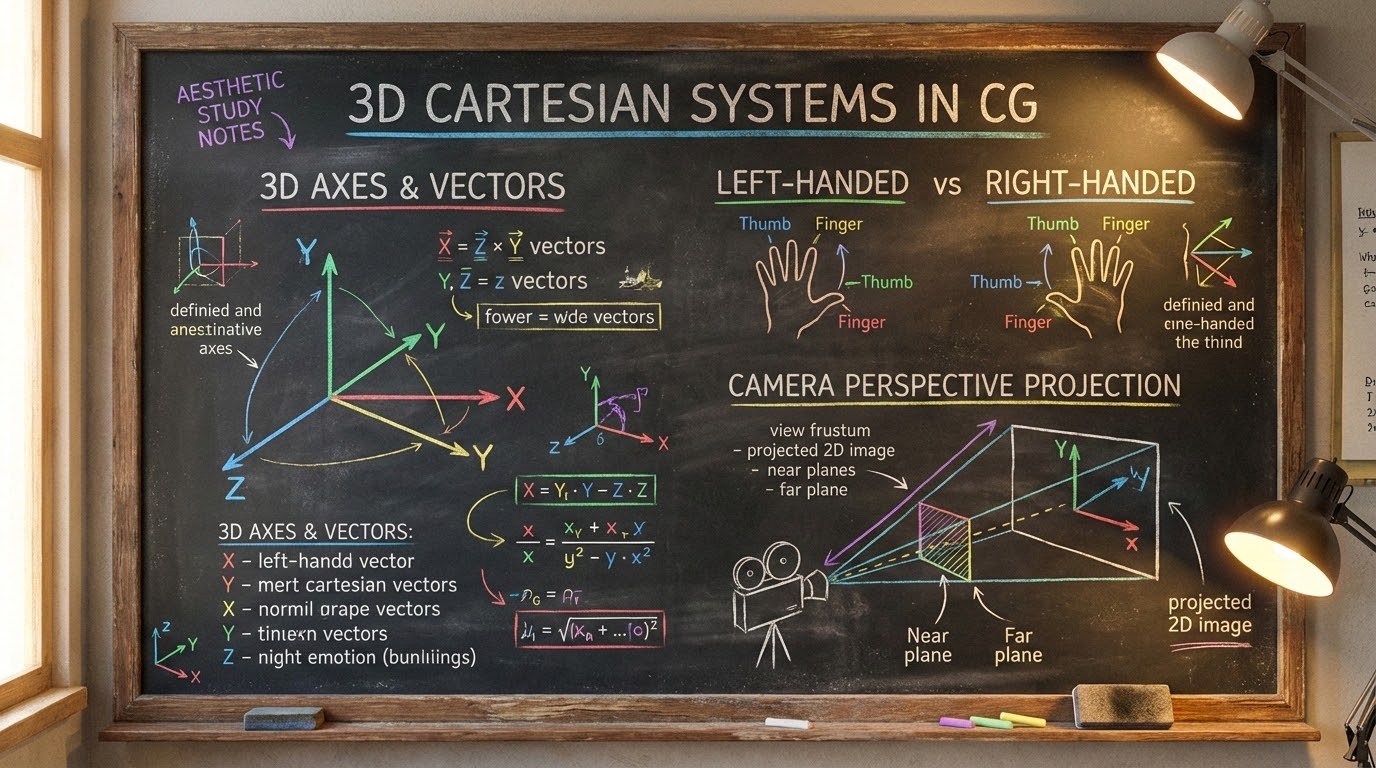 AESTHETIC
STUDY
NOTES
3D CARTESIAN SYSTEMS IN CG
3D AXES & VECTORS
X⃗ = Z⃗ × Y⃗ vectors
Y, Z̄ = z vectors
fower = wide vectors
definied and
anestinative
axes
Y
Y
X
Y
Z
Y
X
Z
6
X = Y₁ · Y – Z · Z
3D AXES & VECTORS:
X – left-handd vector
Y – mert cartesian vectors
X – normil grape vectors
Y – tinıern vectors
Z – night emotion
Z
Y
X
LEFT-HANDED vs RIGHT-HANDED
Thumb Finger
Thumb
Finger
Thumb Finger
Thumb
Finger
definied and
cine-handed
the thind
CAMERA PERSPECTIVE PROJECTION
view frustum
- projected 2D image
- near planes
- far plane
Y
y
X
Near
plane
Far
plane
projected
2D image